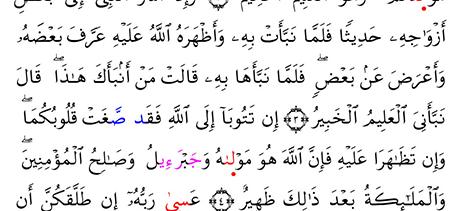 أَزْوَٰجِهِۦ حَدِيثًا فَلَمَّا نَبَّأَتْ بِهِۦ وَأَظْهَرَهُ ٱللَّهُ عَلَيْهِ عَرَّفَ بَعْضَهُۥ
وَأَعْرَضَ عَنۢ بَعْضٍۖ فَلَمَّا نَبَّأَهَا بِهِۦ قَالَتْ مَنْ أَنۢبَأَكَ هَـٰذَاۖ قَالَ
نَبَّأَنِىَ ٱلْعَلِيمُ ٱلْخَبِيرُ ﴿٣﴾ إِن تَتُوبَآ إِلَى ٱللَّهِ فَقَد صَّغَتْ قُلُوبُكُمَاۖ
وَإِن تَظَـٰهَرَا عَلَيْهِ فَإِنَّ ٱللَّهَ هُوَ مَوْلَىٰهُ وَجَبْرَءِيلُ وَصَـٰلِحُ ٱلْمُؤْمِنِينَۖ
وَٱلْمَلَـٰٓئِكَةُ بَعْدَ ذَٰلِكَ ظَهِيرٌ ﴿٤﴾ عَسَىٰ رَبُّهُۥٓ إِن طَلَّقَكُنَّ أَن